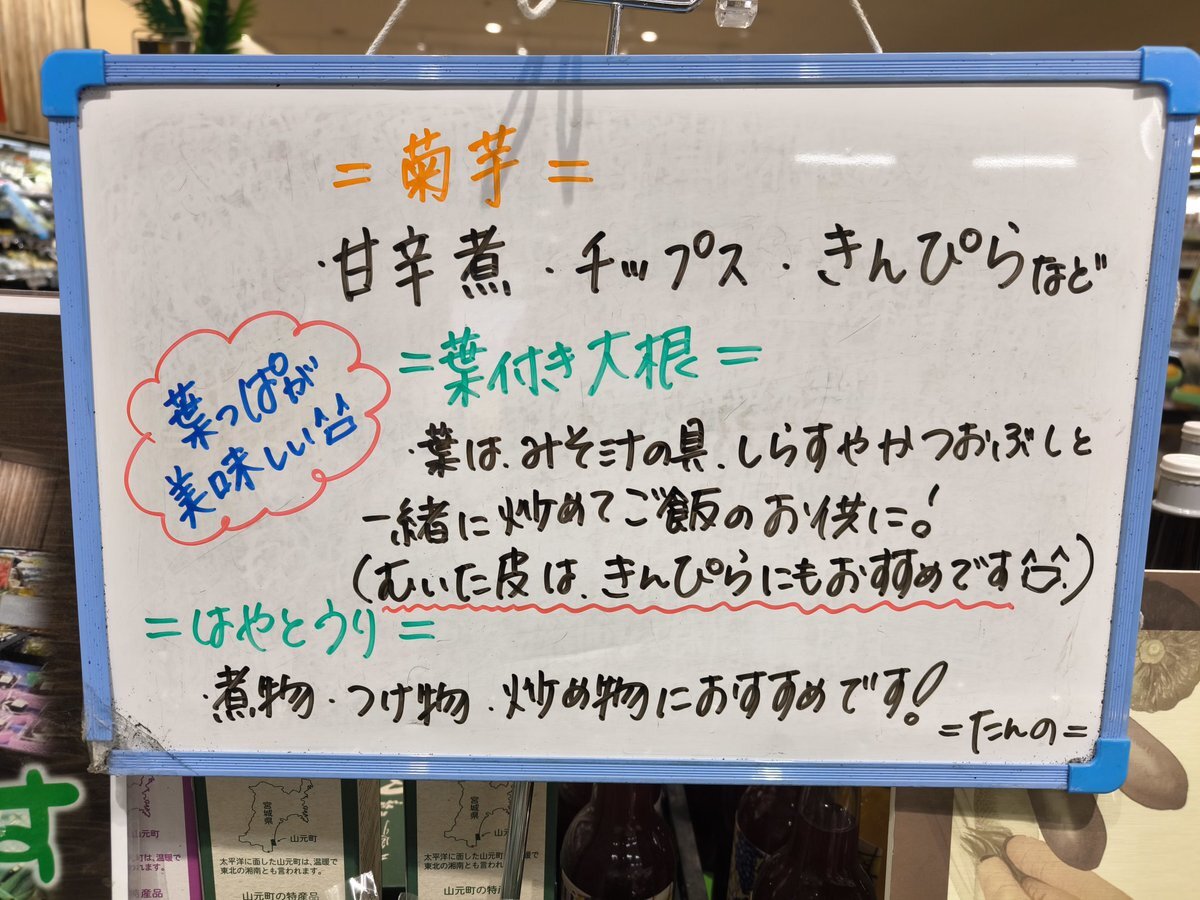 =菊芋=
・甘辛煮・チップス・きんぴらなど
葉っぱが
美味しい
=葉付き大根=
・葉は、みそ汁の具、しらすやかつおぶしと
一緒に炒めてご飯のお供に!
(むいた皮は、きんぴらにもおすすめです)
=はやとうり=
・煮物・つけ物・炒め物におすすめです!
=たんの=
す
町は、温暖で
われます。
産品
宮城県
山元町
太平洋に面した山元町は、温暖で
東北の湘南とも言われます。
山元町の特産品
宮城県
山元町
太平洋に面した山元町
東北の湘南とも言われ
山元町の特